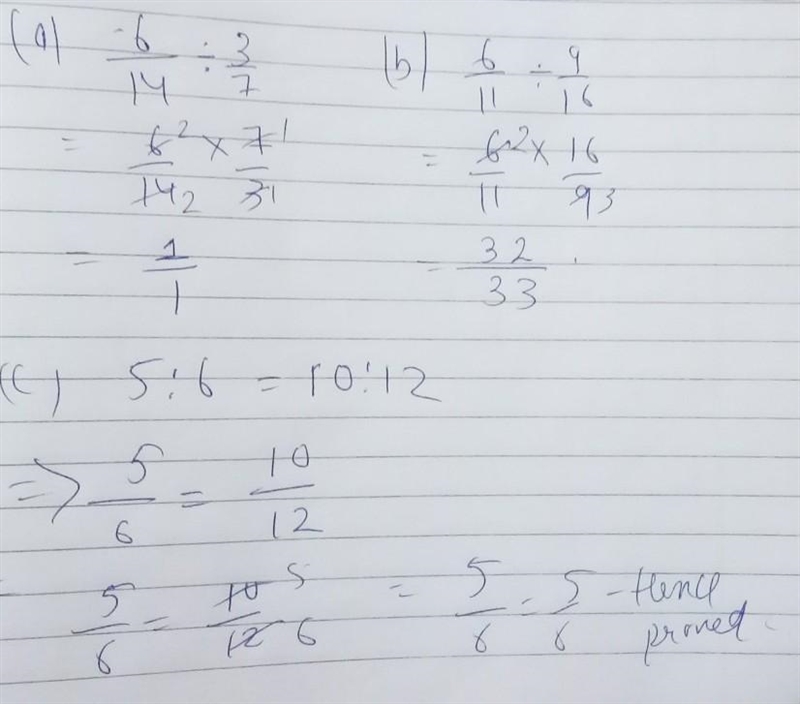 (a) 6/14 ÷ 3/7
= 6 2/14 2 × 7 1/3 1
= 1/1
(b) 6/11 ÷ 9/16
= 6 2/11 × 16/9 3
= 32/33
(c) 5:6 = 10:12
=> 5/6 = 10/12
5/6 = 10 5/12 6 = 5/6 = 5/6 - Hence
proved.